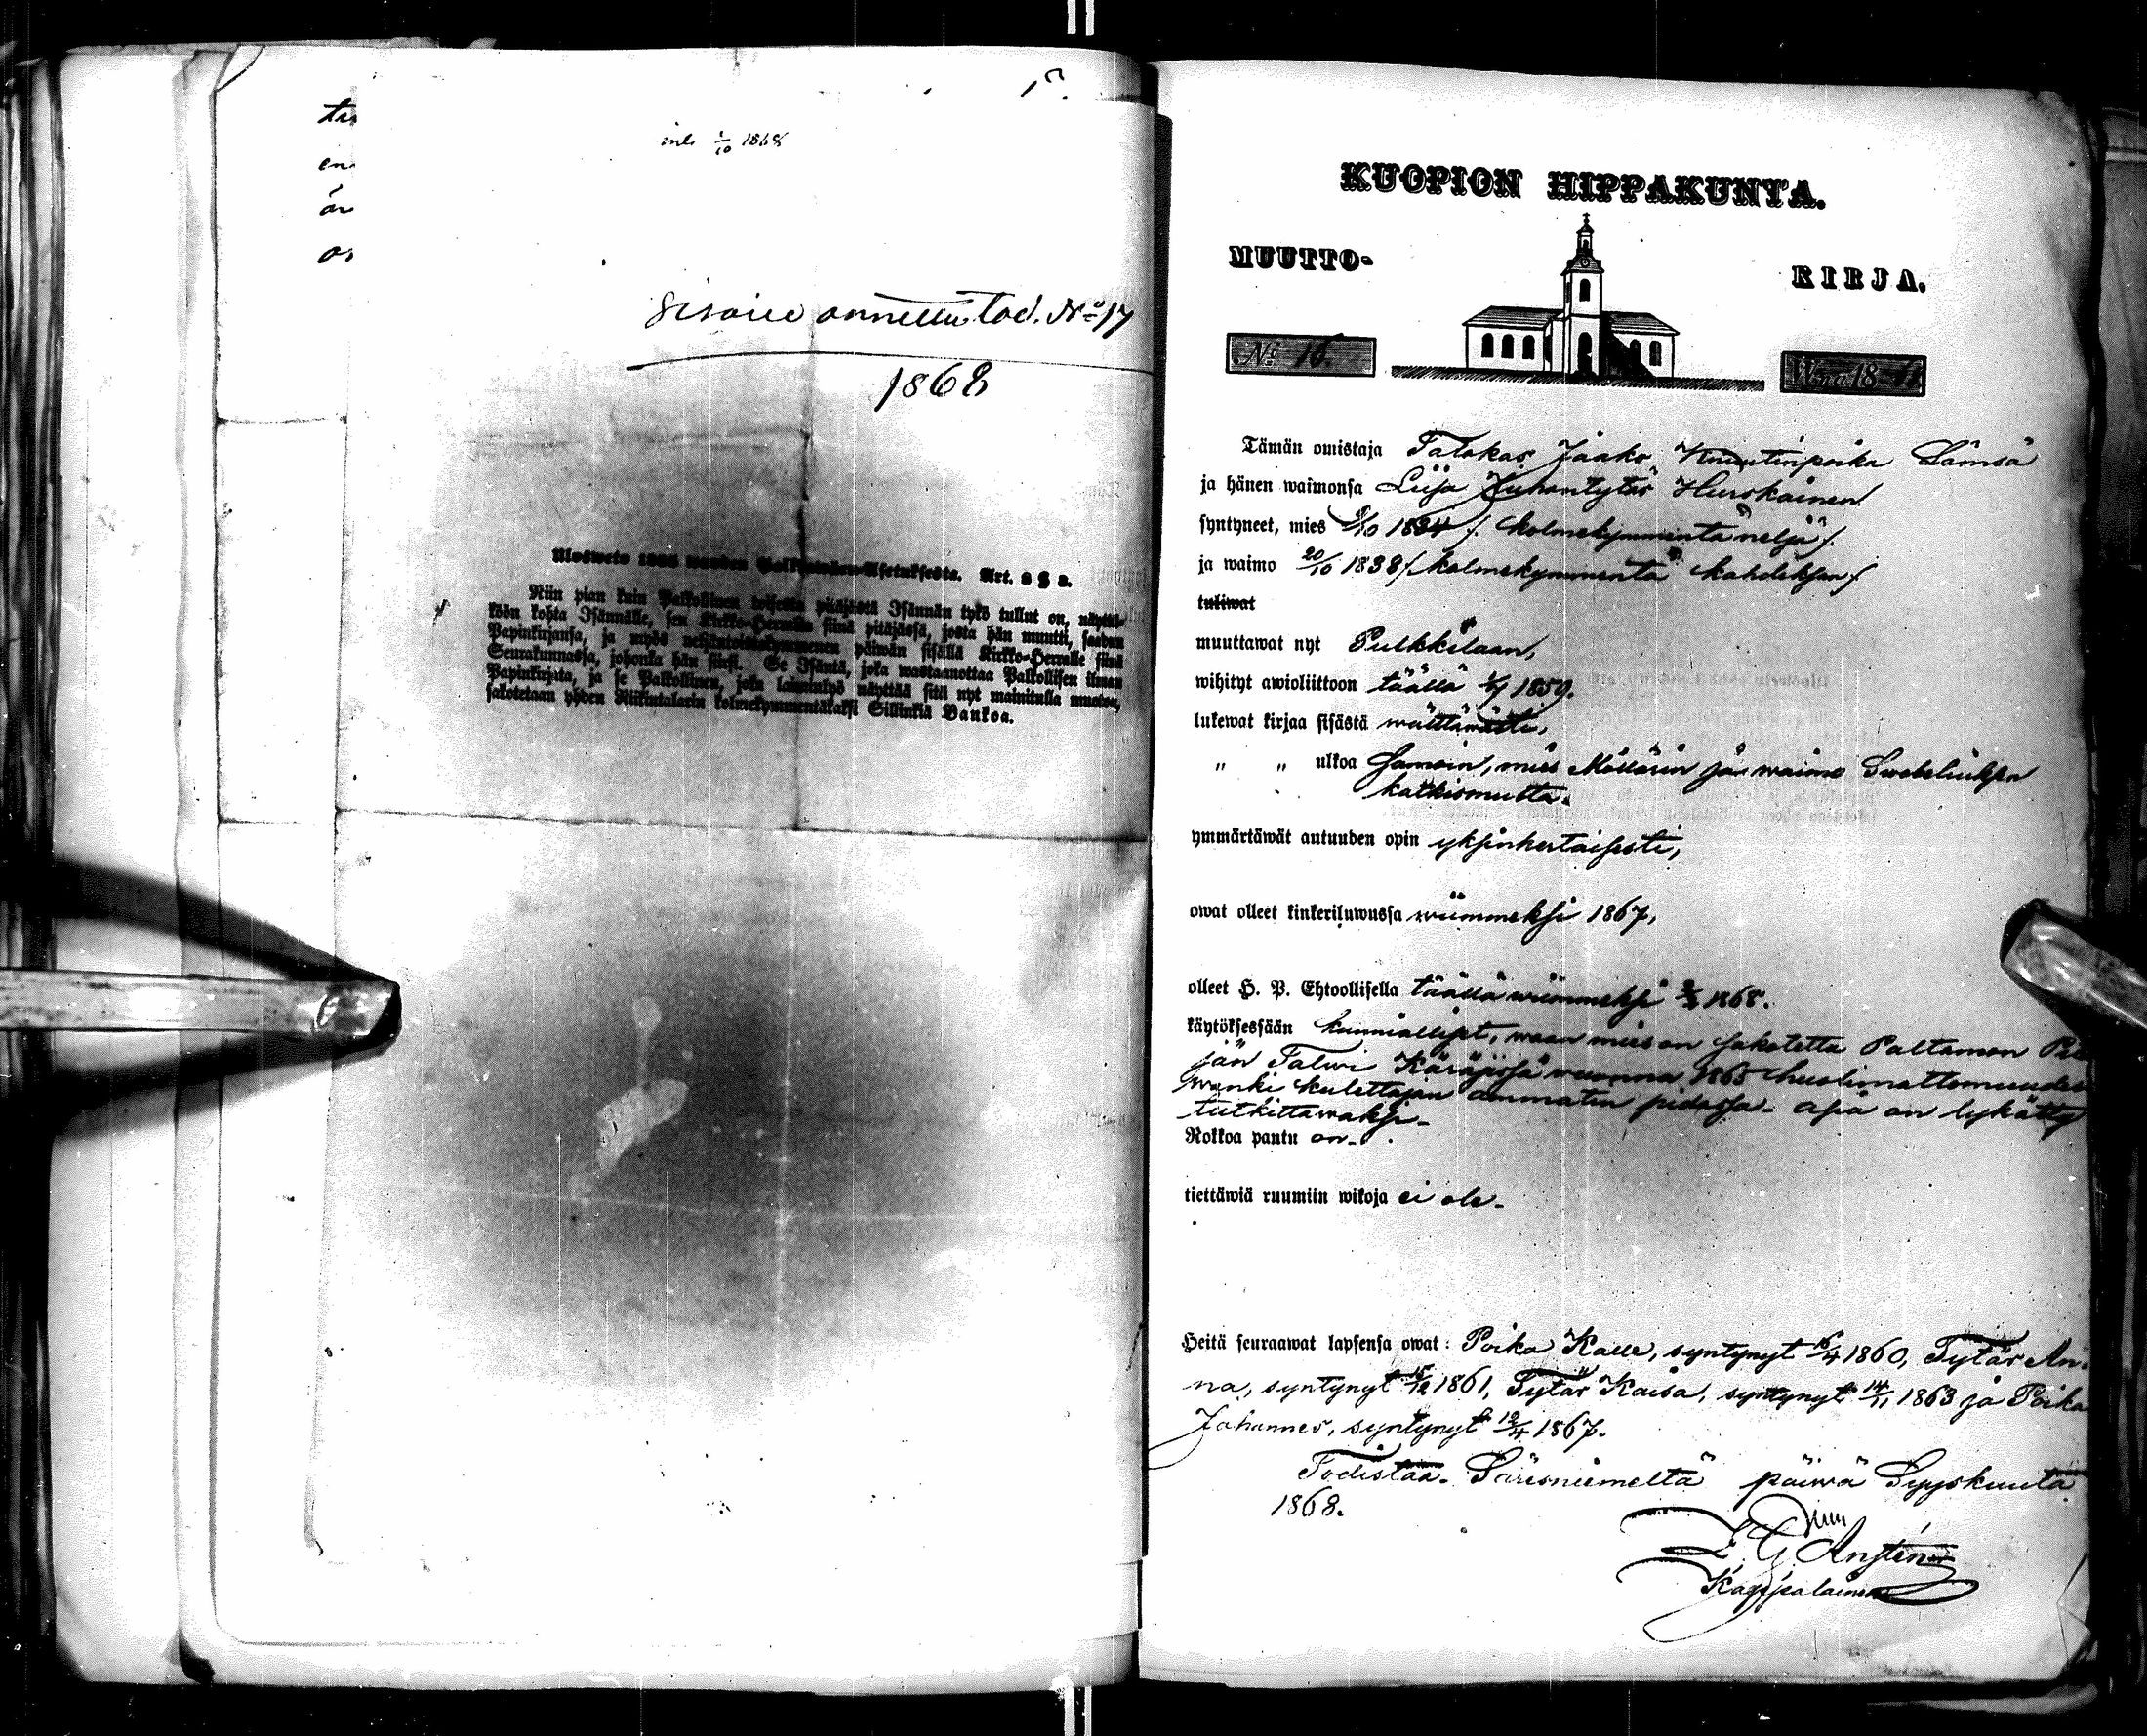 1868
inl. 1/10 1868
annettu tod. No 17
1868
Ulosweto 1865 wuoden Palkollisten-Asetuksesta. Art. 2 § 2.
Niin pian kuin Palkollinen toisesta pitäjästä Isännän tykö tullut on, näyttä-
köön kohta Isännälle, sen Kirkko-Herralta siinä pitäjässä, josta hän muutti, saadun
Papinkirjansa, ja myös neljäntoistakymmenen päiwän sisällä Kirkko-Herralle siinä
Seurakunnassa, johonka hän siirsi. Se Isäntä, joka wastaanottaa Palkollisen ilman
Papinkirjata, ja se Palkollinen, joka laiminlyö näyttää sitä nyt mainitulla muotoa,
sakotetaan yhden Riikintalarin kolmekymmentäkaksi Sillinkiä Bankoa.
KUOPION HIPPAKUNTA.
MUUTTO- KIRJA.
No 16. Wna 18
Tämän omistaja Talokas Jaako Knuutinpoika Sämsä
ja hänen waimonsa Liisa Juhontytär Hurskainen
syntyneet, mies /10 1834 /: kolmekymmentä neljä /:
ja waimo 20/10 1838 /: kolmekymmentä kahdeksan /:
tuliwat
muuttawat nyt Pulkkilaan,
wihityt awioliittoon täällä 1859.
lukewat kirjaa sisästä wälttäwästi,
" " ulkoa samoin, mies Möllärin ja waimo Swebeliuksen
katkismusta.
ymmärtäwät autuuden opin yksinkertaisesti,
owat olleet kinkeriluwussa wiimmeksi 1867,
olleet H. P. Ehtoollisella täällä wiimmeksi 1868.
käytöksessään kunnialliset, waan mies on sakotettu Paltamon
jän Talwi Käräjissä wuonna 1865 huolimattomuuden
wanki kulettajan ammatin pidossa. asia on lykätty
tutkittawaksi.
Rokkoa pantu on.
tiettäwiä ruumiin wikoja ei ole.
Heitä seuraawat lapsensa owat: Poika Kalle, syntynyt 16/4 1860, Tytär An-
na, syntynyt 15/12 1861, Tytär Kaisa, syntynyt 14/11 1863 ja Poika
Johannes, syntynyt 12/4 1867.
Todistaa. Säresniemeltä päiwä Syyskuuta
1868.
Kappalainen